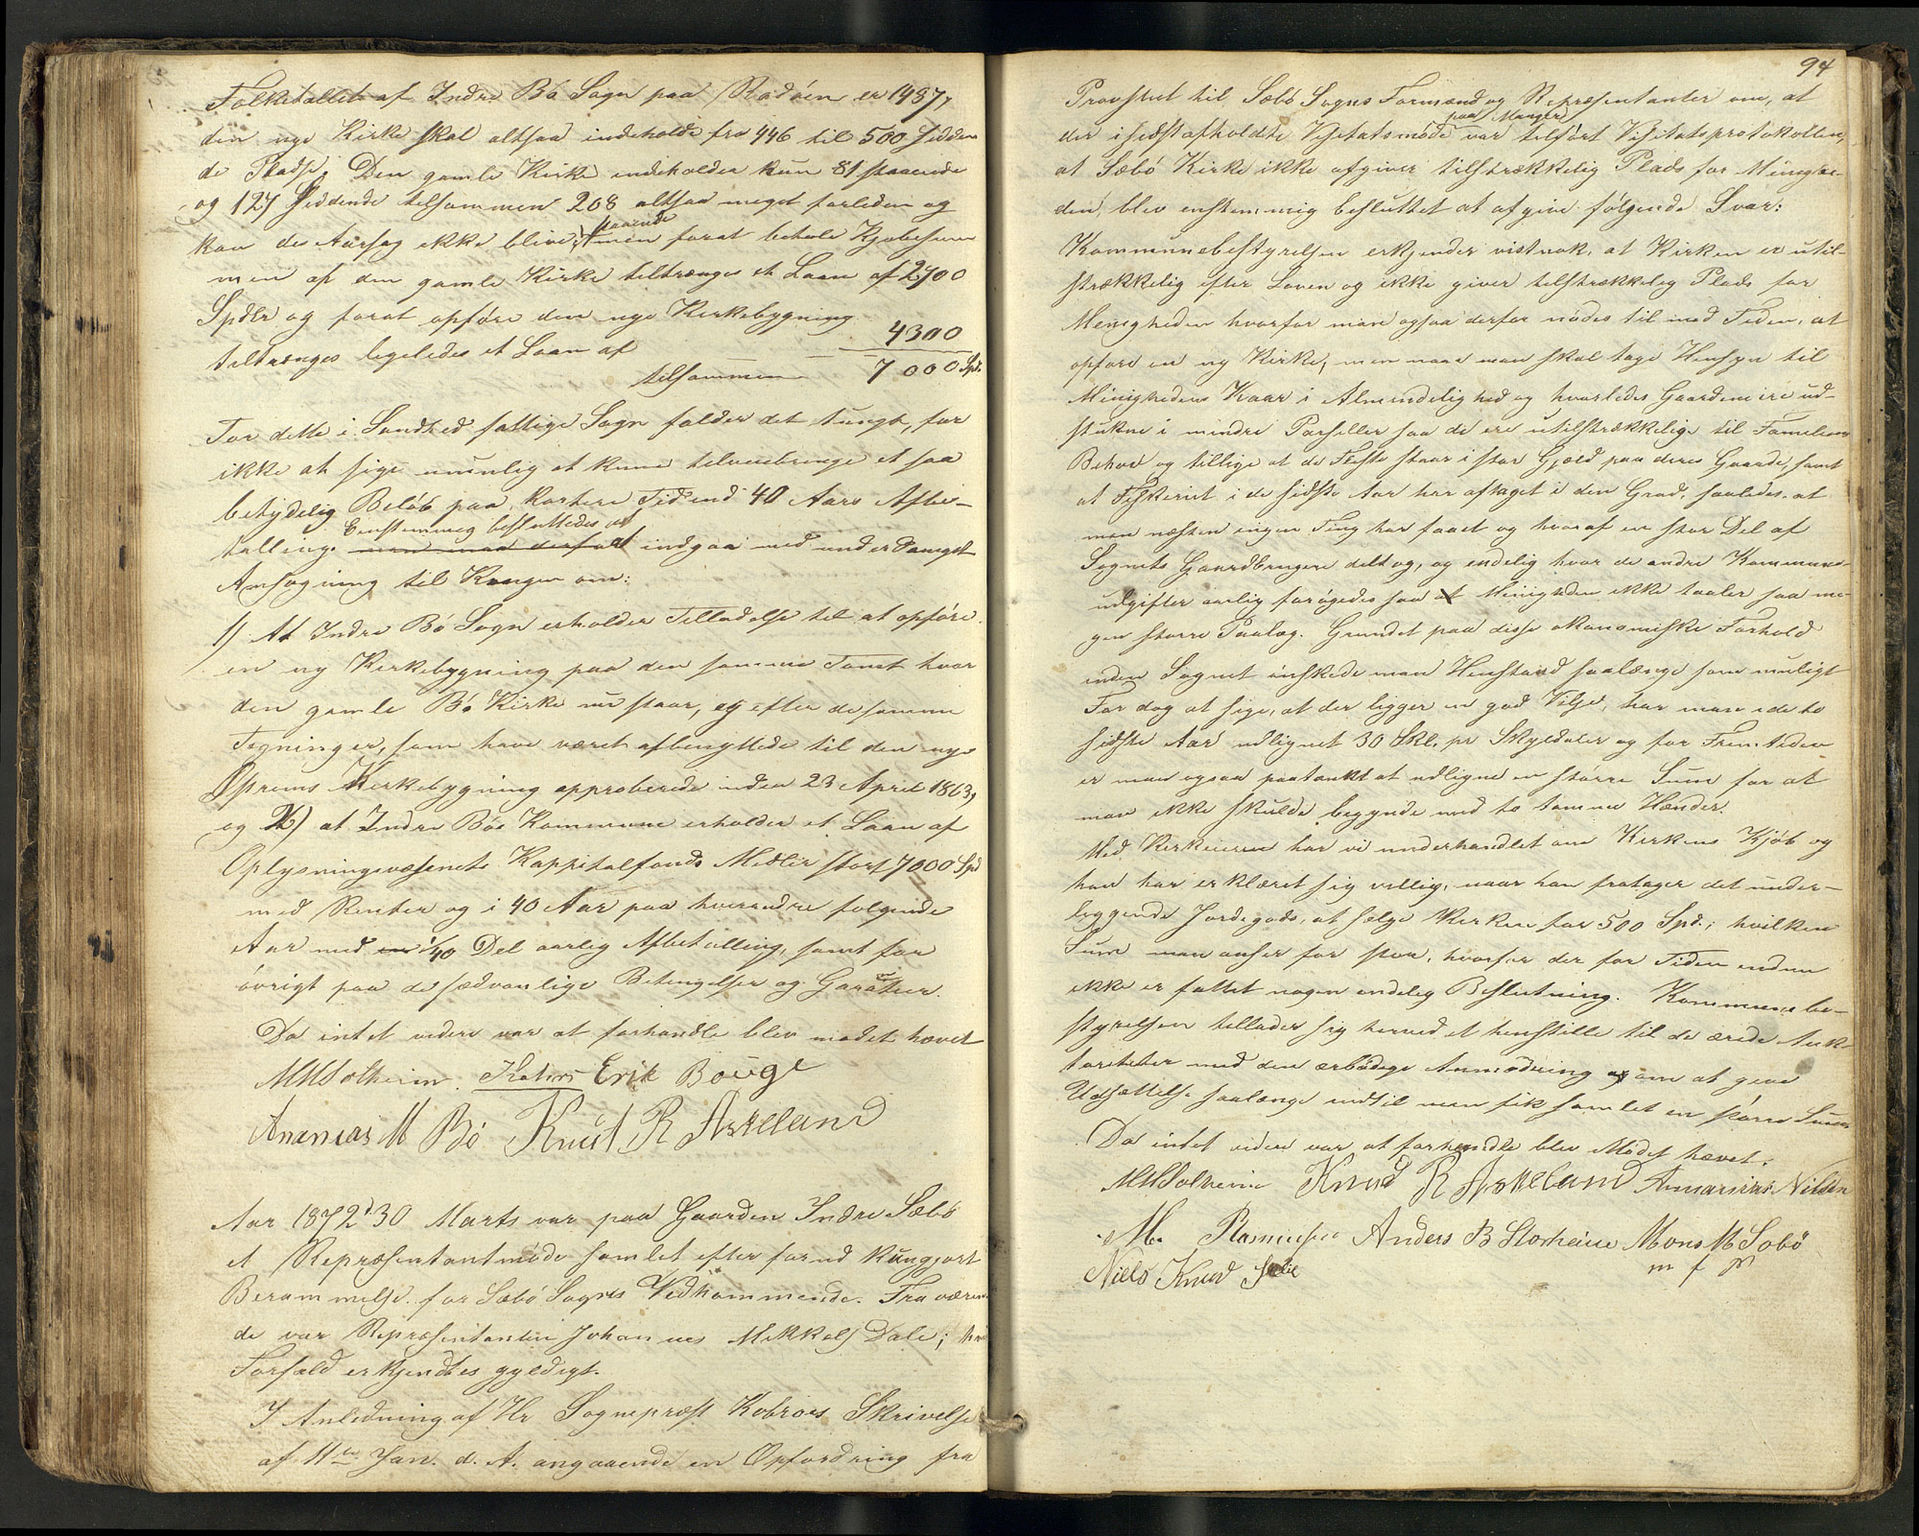 Folketallet af Indre Bø Sogn paa Radøen er 1487,
den nye Kirke skal altsaa indeholde fra 446 til 500 sidden
de Pladse. Den gamle Kirke indeholder kun 81 staaende
og 127 siddende tilsammen 208 altsaa meget forliden og
kan des Aarsag ikke blive staaende, men forat betale Kjøbesum
men af den gamle Kirke tiltrænges et Laan af 2700
Spdlr og forat opføre den nye Kirkebygning
tiltrænges ligeledes et Laan af 4300
tilsammen 7000 Spd.
For dette i Sandhed fattige Sogn falder det tungt, for
ikke at sige umulig at kunne tilveiebringe et saa
betydelig Beløb paa kortere Tid end 40 Aars Afbe-
talling. Eenstemmig besluttedes at indgaa med underdanigst
Ansøgning til Kongen om:
1) At Indre Bø Sogn erholder Tilladelse til at opføre
en ny Kirkebygning paa den samme Tomt hvor
den gamle Bø Kirke nu staar, og efter de samme
Tegninger, som have været afbenyttede til den nye
Kirkebygning approberede under 23 April 1863,
og 2) at Indre Bøe Kommune erholder et Laan af
Oplysningsvæsenets Kappitalfonds Midler stort 7000 Spd
med Renter og i 40 Aar paa hverandre følgende
Aar med 1/40 Del aarlig Afbetalling, samt for
øvrigt paa de sædvanlige Betingelser og Garantier.
Da intet videre var at forhandle blev mødet hævet
MMSolheim Erik Bøuge
Ananias M Bø Knud R Askeland
Aar 1872 d 30 Marts var paa Gaarden Indre Sæbø
et Repræsentantmøde samlet efter forud kungjort
Berammelse for Sæbø Sogns Vedkommende. Fraværen
de var Repræsentanten Johannes Mikkels Dale;
Forfald erkjendtes gyldigt.
I Anledning af Hr Sognepræst Kobroes Skrivelse
af 11te Jan. d. A. angaaende en Opfordring fra
94
Provstiet til Sæbø Sogns Formænd og Repræsentanter om, at
der i sidst afholdte Visitatsmøde paa Manger var tilført Visitatsprotokollen,
at Sæbø Kirke ikke afgiver tilstrækkelig Plads for Menighe-
den, blev enstemmig besluttet at afgive følgende Svar:
Kommunebestyrelsen erkjender vistnok, at Kirken er util-
strækkelig efter Loven og ikke giver tilstrækkelig Plads for
Menigheden hvorfor man ogsaa derfor nødes til med Tiden, at
opføre en ny Kirke, men naar man skal tage Hensyn til
Menighedens Kaar i Almindelighed og hvorledes Gaardene ere ud-
stukne i mindre Parseller saa de ere utilstrækkelige til Familiens
Behov og tillige at de Fleste staar i stor Gjæld paa deres Gaarde, samt
at Fiskeriet i de sidste Aar har aftaget i den Grad, saaledes at
man næsten ingen Ting har faaet og hvoraf en stor Del af
Sognets Gaardbrugere deltog, og endelig hvor de andre Kommune-
udgifter aarlig forøgedes saa Menigheden ikke taaler saa me-
gen større Paalæg. Grundet paa disse økonomiske Forhold
inden Sognet ønskede man Henstand saalænge som muligt
For dog at sige, at der ligger en god Vilje, har man i de to
sidste Aar udlignet 30 Skl. pr Skyldaler og for Fremtiden
er man ogsaa paatænkt at udligne en større Sum for at
man ikke skulde begynde med to tomme Hænder.
Med Kirkeieren har vi underhandlet om Kirkens Kjøb og
han har erklæret sig villig, naar han fratager det under-
liggende Jordegods, at sælge Kirken for 500 Spd.; hvilken
Sum man anser for stor, hvorfor der for Tiden endnu
ikke er fattet nogen endelig Beslutning. Kommunebe-
styrelsen tillader sig herved at henstille til de ærede Auk-
toriteter med den ærbødige Anmodning om at give
Udsættelse saalænge indtil man fik samlet en større Sum
Da intet videre var at forhandle blev Mødet hævet.
MMSolheim Knud R Askeland Annanias Nilsen
M. Anders B Storheim Mons M Sæbø
m f P
Niels Knud